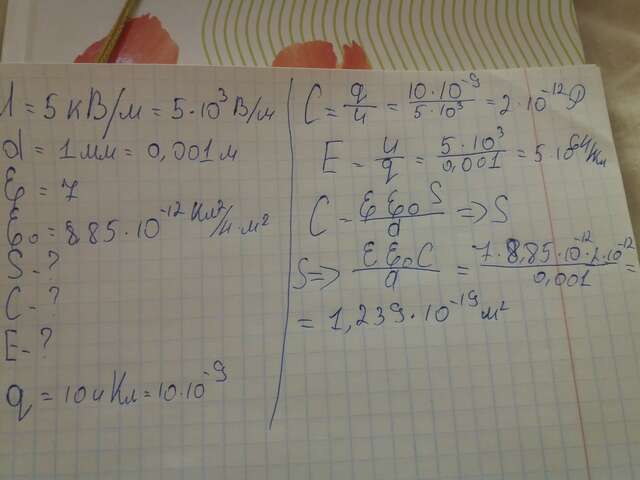 U = 5 кВ/м = 5·10³ В/м
d = 1 мм = 0,001 м
ε = 7
ε₀ = 8,85·10⁻¹² Кл²/Н·м²
S - ?
C - ?
E - ?
q = 10 нКл = 10·10⁻⁹
C = q/u = 10·10⁻⁹/5·10³ = 2·10⁻¹² Ф
E = u/q = 5·10³/0,001 = 5·10⁶ Н/Кл
C = εε₀S/d => S
S => εε₀C/d = 7·8,85·10⁻¹²·2·10⁻¹²/0,001 =
= 1,239·10⁻¹⁹ м²